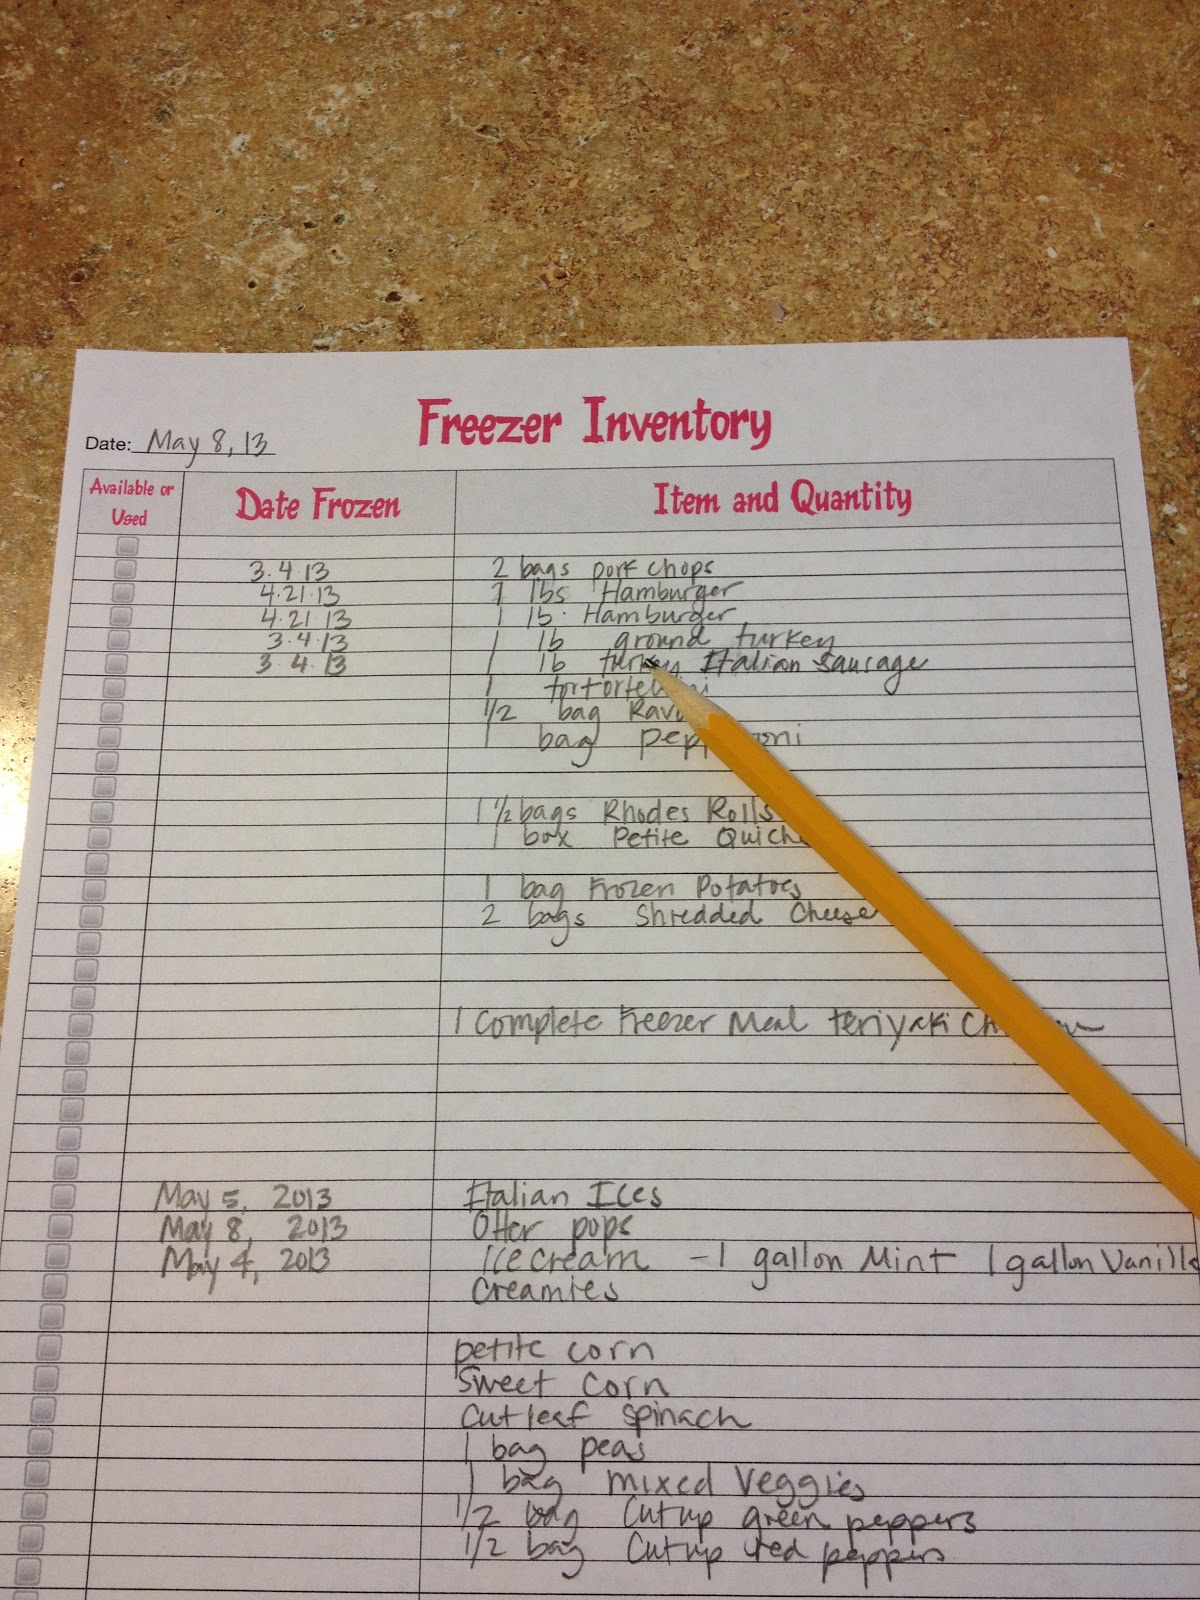 Freezer Inventory
Date: May 8, 13
Available or Used
Date Frozen
Item and Quantity
3.4.13 2 bags pork chops
4.21.13 lbs Hamburger
4.21.13 1 lb. Hamburger
3.4.13 1 lb ground turkey
3.4.13 1 lb turkey Italian sausage
1
1/2 bag
1 bag
1 1/2 bags Rhodes Rolls
1 box Petite
1 bag Frozen Potatoes
2 bags Shredded Cheese
1 Complete Freezer Meal teriyaki
May 5, 2013 Italian Ices
May 8, 2013 Otter pops
May 4, 2013 Ice cream - 1 gallon Mint 1 gallon Vanilla
Creamies
petite corn
Sweet Corn
Cut leaf spinach
1 bag peas
1 bag mixed Veggies
1/2 bag Cut up green peppers
1/2 bag Cut up red peppers